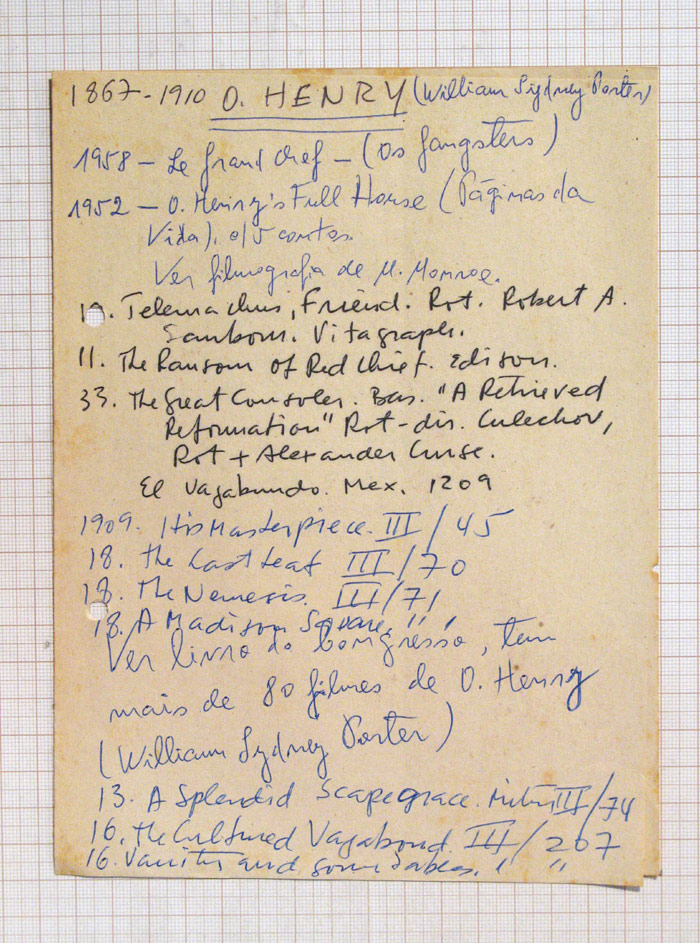 1867-1910 O. HENRY (William Sydney Porter)
1958 - Le grand chef - (Os gangsters)
1952 - O. Henry's Full House (Páginas da
Vida). c/5 contos.
Ver filmografia de M. Monroe.
Telemachus, Friend. Rot. Robert A.
Sanborn. Vitagraph.
11. The Ransom of Red Chief. Edison.
33. The Great Consoler. Bas. "A Retrieved
Reformation" Rot-dir. Culechov,
Rot + Alexander Curse.
El Vagabundo. Mex. 1209
1909. His Masterpiece. III/45
18. The Last Leaf III/70
18. The Nemesis. III/71
18. A Madison Square. " "
Ver livro do Congresso, tem
mais de 80 filmes de O. Henry
(William Sydney Porter)
13. A Splendid Scapegrace. III/74
16. The Cultured Vagabond. III/207
16. Vanity and some Sables. " "